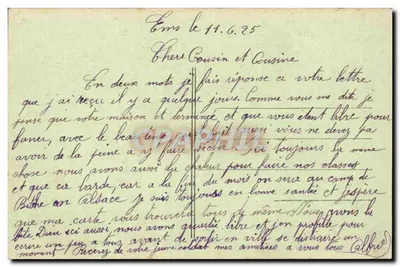 Ems le 11.6.25
Chers Cousin et Cousine
En deux mots je fais réponse a votre lettre
que j'ai reçu il y a quelque jours. Comme vous me dite je
pense que votre maison et terminé et que vous etent libre pour
faner, avec le beau temps qu'il fait vous ne devez pas
avoir de la peine a y faire secher. Ici toujours la meme
chose nous avons aussi du chaleur pour faire nos classes
et que ca barde, car a la fin du mois on sera au camp de
Bitche en Alsace. Je suis toujours en bonne santée et j'espère
que ma carte vous trouvera tous de même. Nous avons la
fête Dieu ici aussi, nous avons quartié libre et j'en profite pour
écrire un peu a tous avant de sortir en ville se distraire un
moment. Recevez de votre jeune soldat mes amitiées a vous tous Alfred